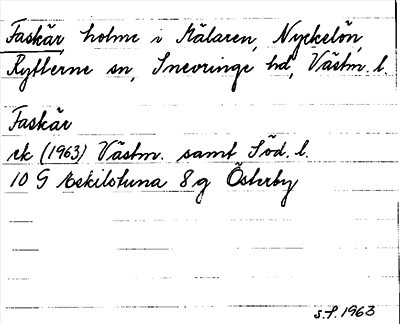 Faskär, holme i Mälaren, Nyckelön,
Rytterne sn, Snevringe hd, Västm. l.
Faskär
rk (1963) Västm. samt Söd. l.
10 G Eskilstuna 8 g Österby
s.f. 1963